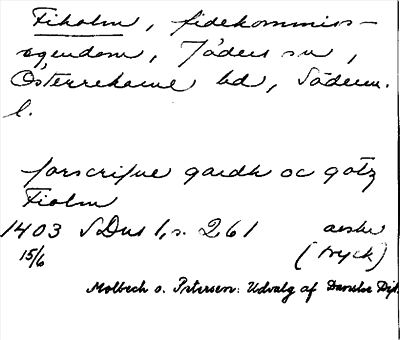 Fiholm, fidekommiss-
egendom, Jäders sn,
Österrekarne hd, Söderm.
l.
forscrifne gardh oc götz
Fiolm
1403 SDns 1, s. 261 avskr
15/6 (tryck)
Molbech o. Petersen: Udvalg af Danske Dipl.